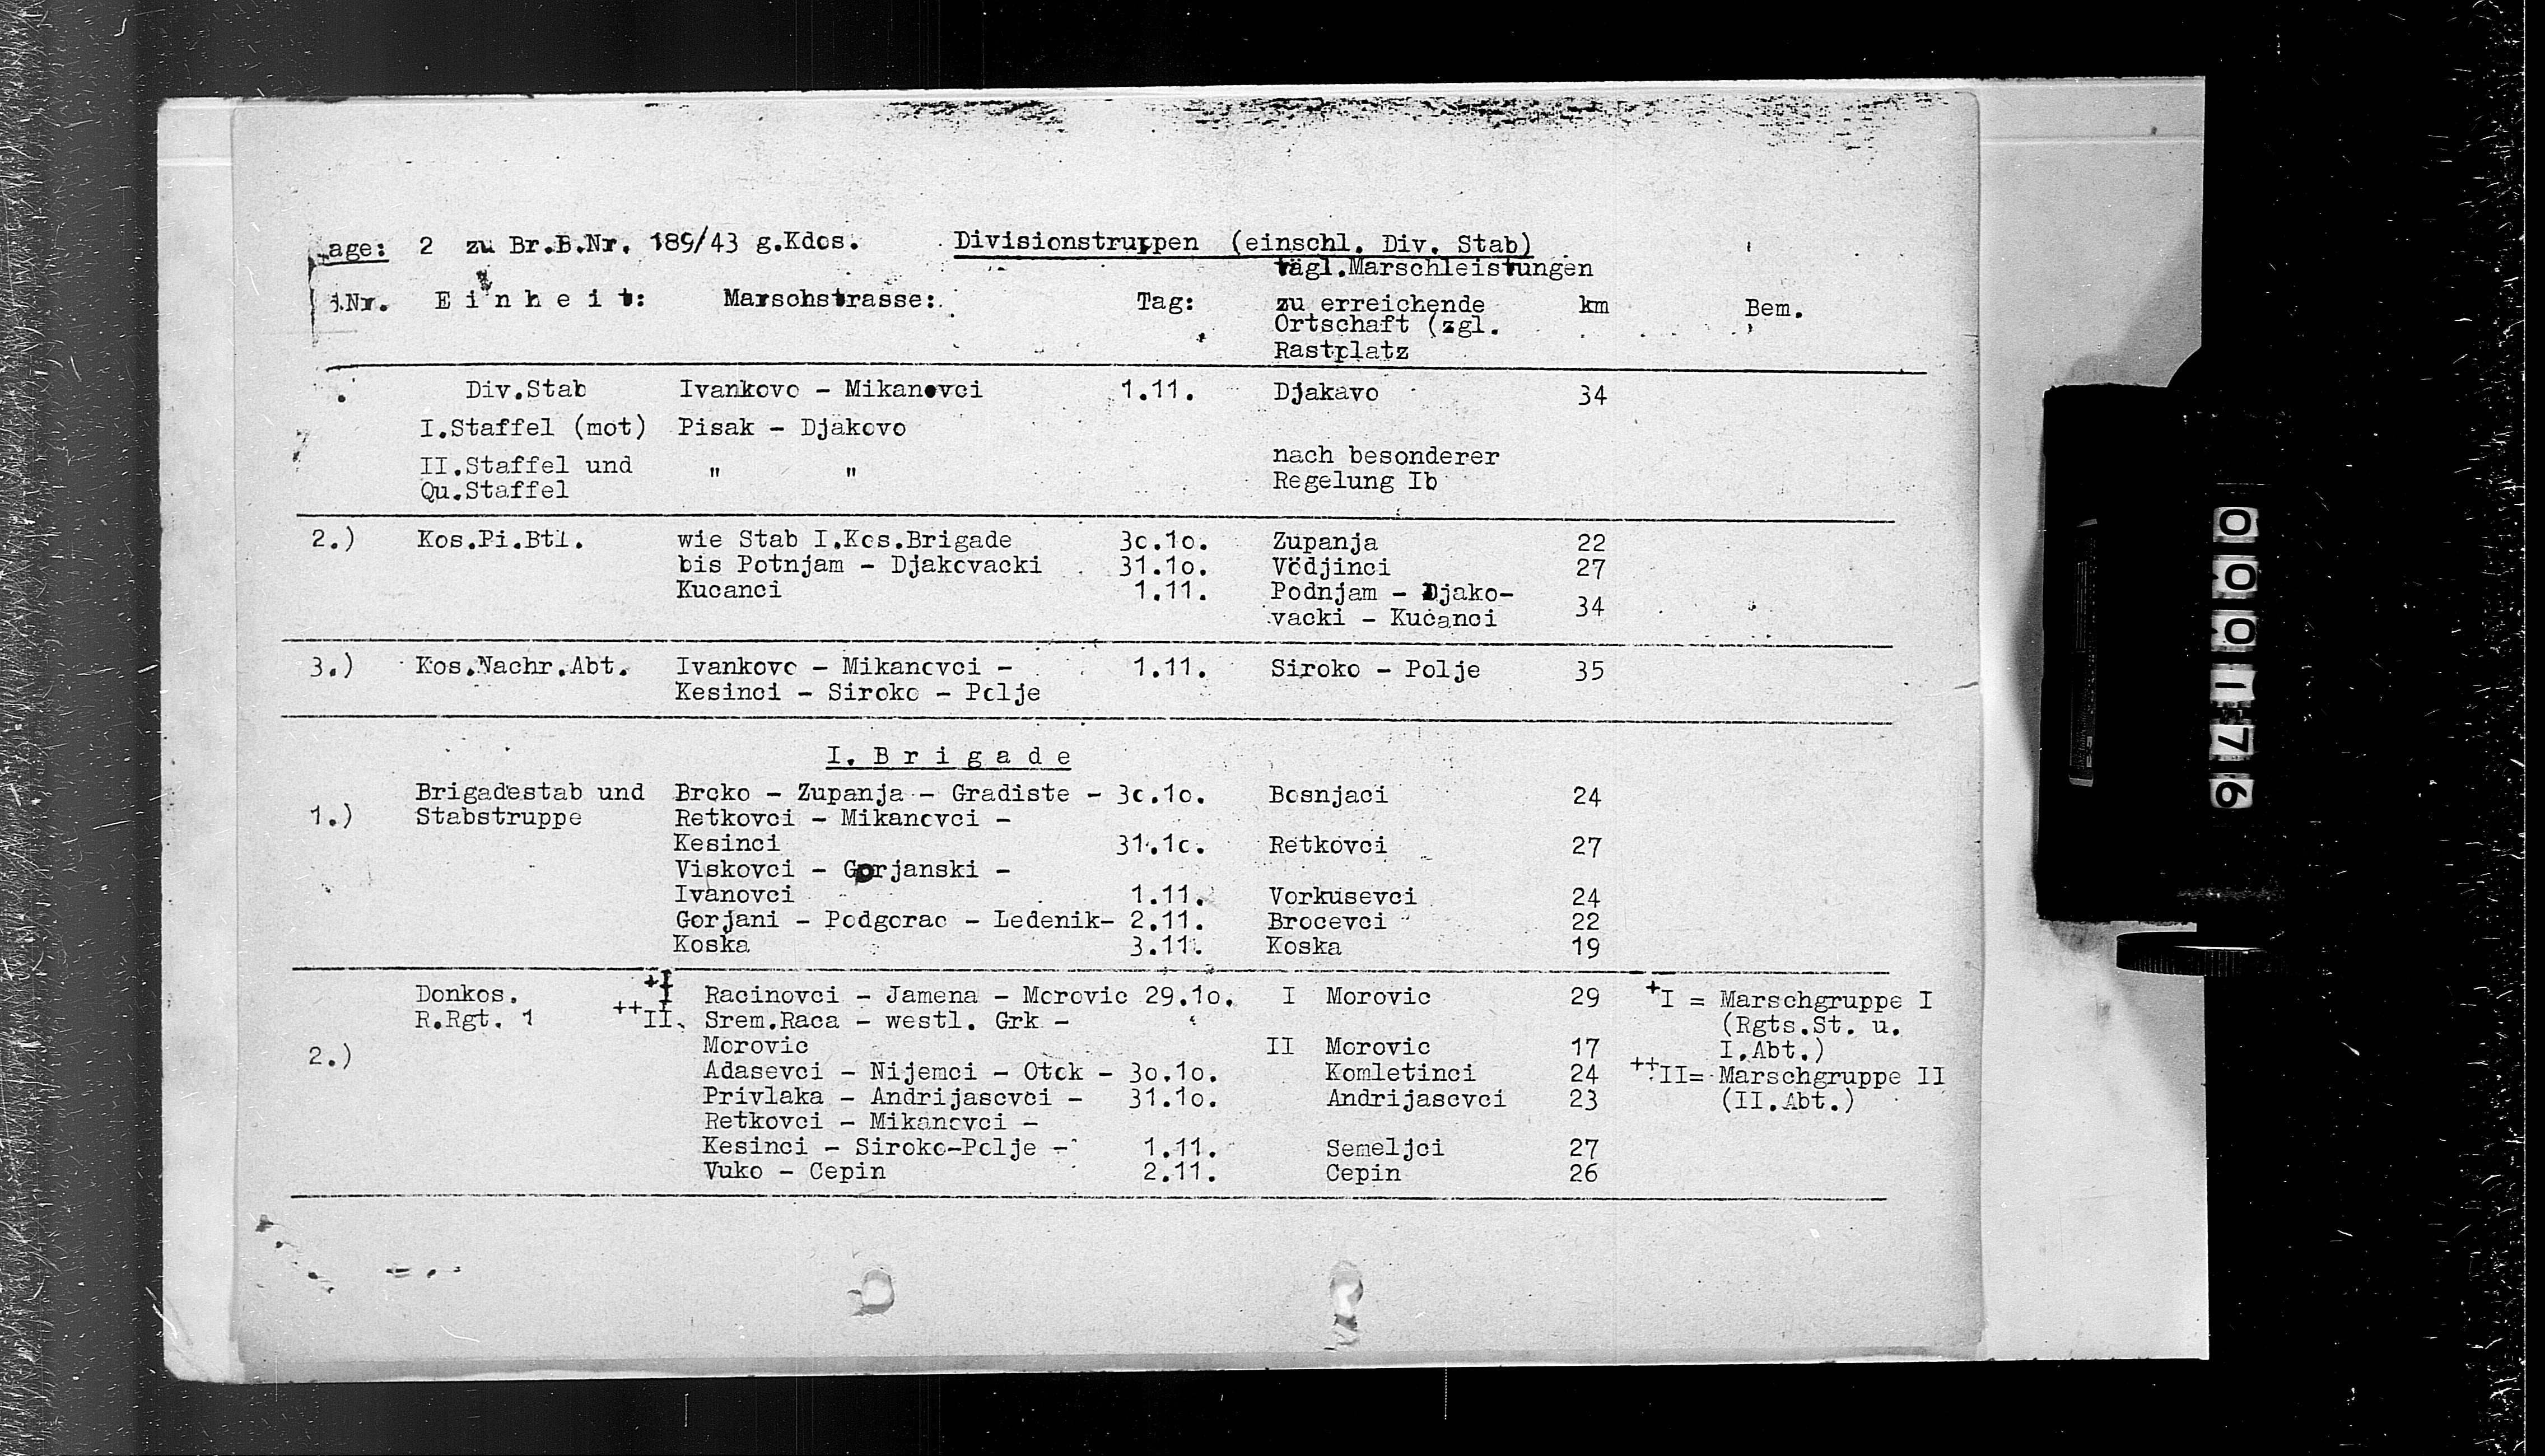 age: 2 zu Br.B.Nr. 189/43 g.Kdos. Divisionstruppen (einschl. Div. Stab)
tägl.Marschleistungen
.Nr. E i n h e i t: Marschstrasse: Tag: zu erreichende km Bem.
Ortschaft (zgl.
Rastplatz
Div.Stab Ivankovo - Mikanovci 1.11. Djakavo 34
I.Staffel (mot) Pisak - Djakovo
II.Staffel und " " nach besonderer
Qu.Staffel Regelung Ib
2.) Kos.Pi.Btl. wie Stab I.Kos.Brigade 3o.1o. Zupanja 22
bis Potnjam - Djakovacki 31.1o. Vödjinci 27
Kucanci 1.11. Podnjam - Djako-
vacki - Kucanci 34
3.) Kos.Nachr.Abt. Ivankovo - Mikanovci - 1.11. Siroko - Polje 35
Kesinci - Siroko - Polje
I. B r i g a d e
Brigadestab und Brcko - Zupanja - Gradiste - 3o.1o. Bosnjaci 24
1.) Stabstruppe Retkovci - Mikanovci -
Kesinci 31.1o. Retkovci 27
Viskovci - Gorjanski -
Ivanovci 1.11. Vorkusevci 24
Gorjani - Podgorac - Ledenik- 2.11. Brocevci 22
Koska 3.11. Koska 19
Donkos. +I Racinovci - Jamena - Morovic 29.1o. I Morovic 29 +I = Marschgruppe I
R.Rgt. 1 ++II. Srem.Raca - westl. Grk - (Rgts.St. u.
Morovic II Morovic 17 I.Abt.)
2.) Adasevci - Nijemci - Otok - 3o.1o. Komletinci 24 ++II= Marschgruppe II
Privlaka - Andrijasevci - 31.1o. Andrijasevci 23 (II.Abt.)
Retkovci - Mikanovci -
Kesinci - Siroko-Polje - 1.11. Semeljci 27
Vuko - Cepin 2.11. Cepin 26
000176